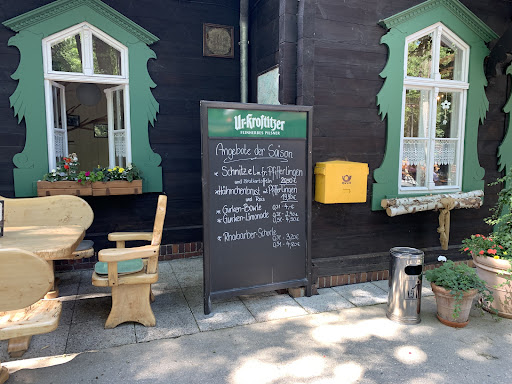 Ur-Krostitzer
FEINHERBES PILSNER
Angebote der Saison
* Schnitzel m. Pfifferlingen
und Bratkartoffeln
* Hähnchenbrust mit Pfifferlingen
und Reis 19,80 €
* Gurken-Bowle 0,2l - 4,
* Gurken-Limonade 0,2l - 2,90 €
0,5l - 4,50 €
* Rhabarber-Schorle 0,2l - 3,20 €
0,4l - 4,90 €